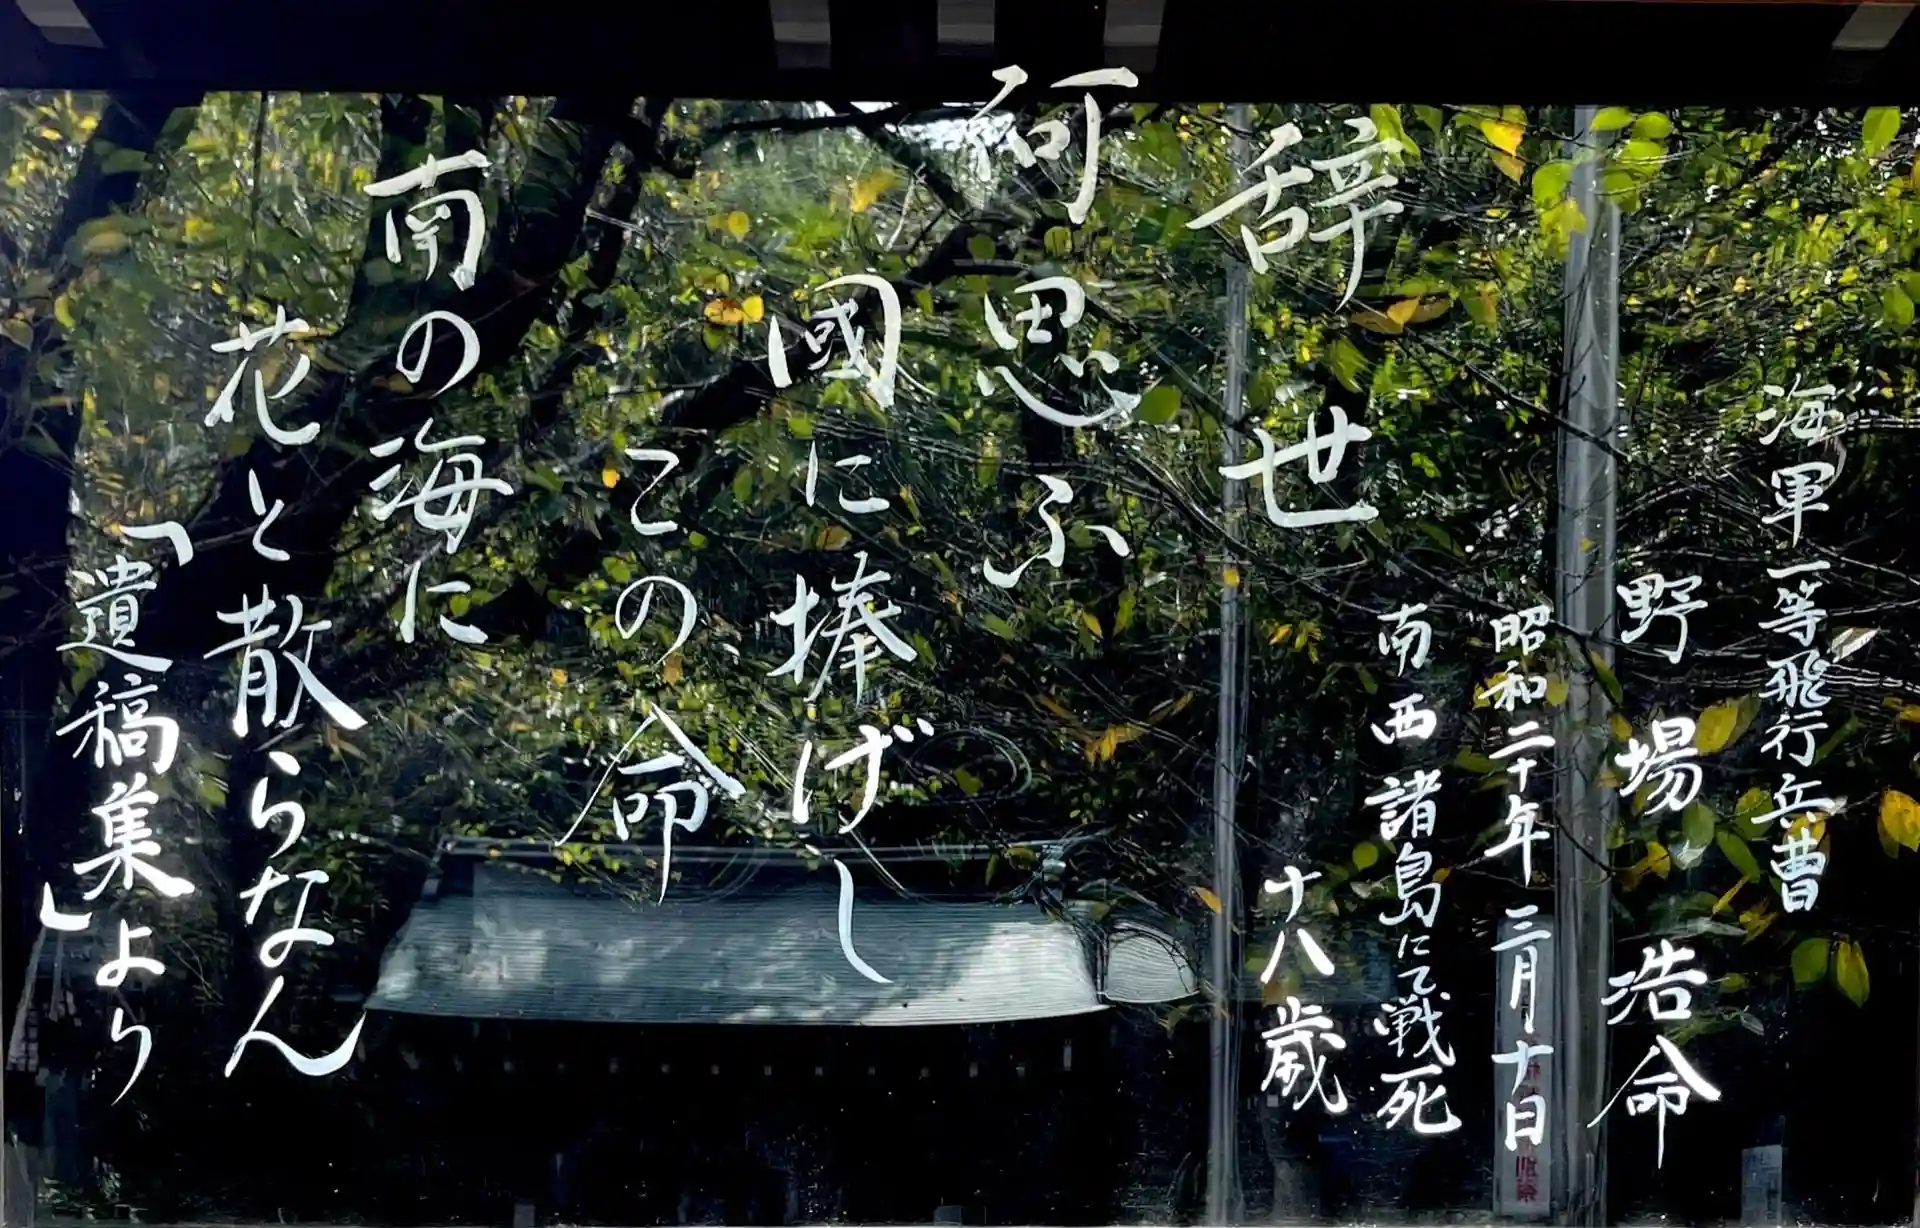 辞世
何思ふ
國に捧げし
この命
南の海に
花と散らなん
「遺稿集」より
海軍一等飛行兵曹
野場 浩命
昭和二十年三月十日
南西諸島にて戦死
十八歳